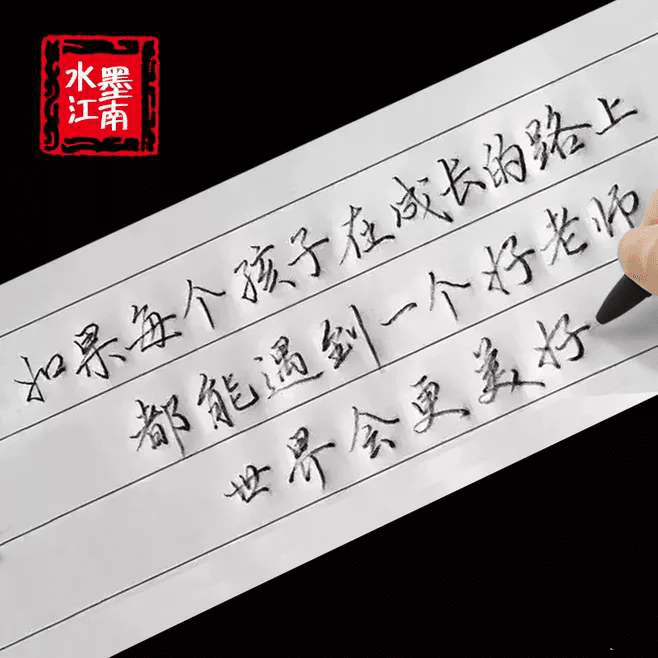 水墨
江南
如果每个孩子在成长的路上
都能遇到一个好老师
世界会更美好